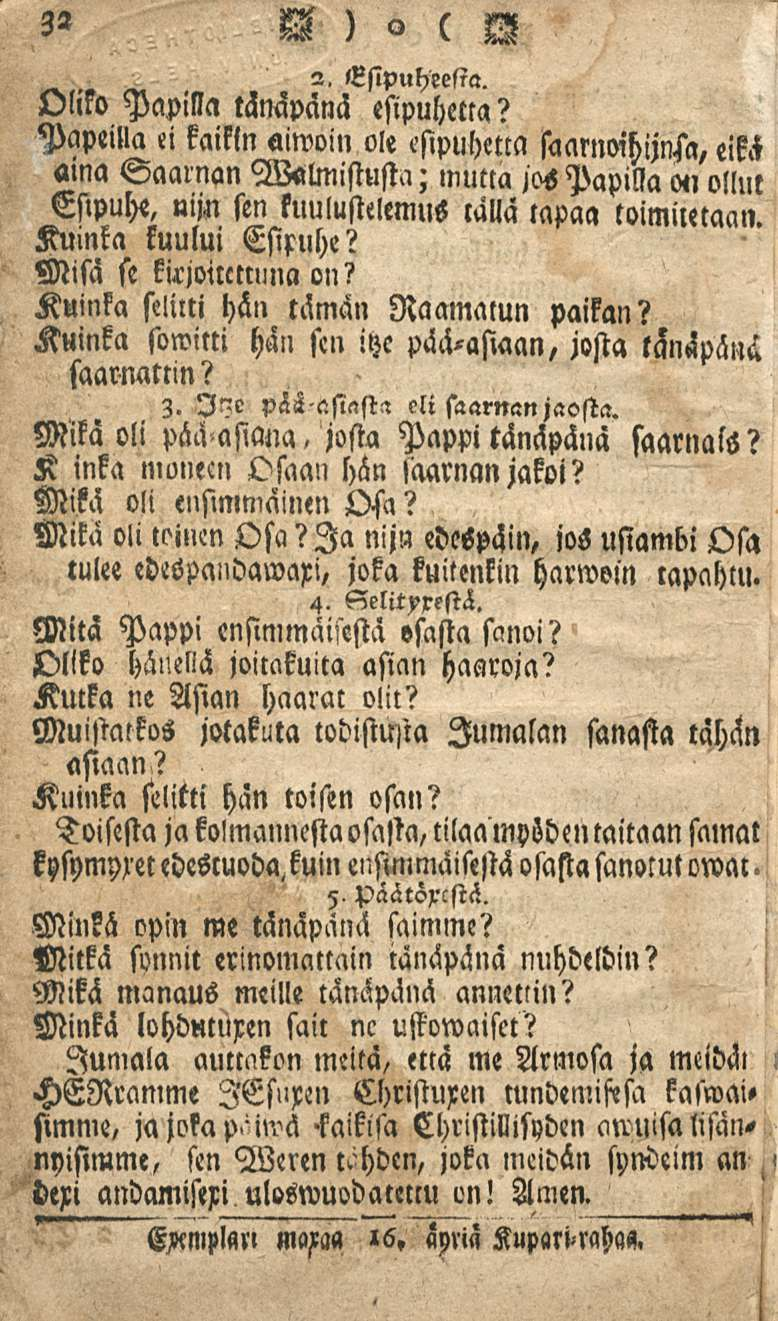 32 ) o (
2. Esipuheesta.
Oliko Papilla tänäpänä esipuhetta?
Papeilla ei kaikin aiwoin ole esipuhetta saarnoihijnsa, eikä
aina Saarnan Walmistusta; mutta jos Papilla on ollut
Esipuhe, nijn sen kuulustelemus tällä tapaa toimitetaan.
Kuinka kuului Esipuhe?
Misä se kirjoitettuna on?
Kuinka selitti hän tämän Raamatun paikan?
Kuinka sowitti hän sen itze pää-asiaan, josta tänäpänä
saarnattin?
3. Itze pää-asiasta eli saarnan jaosta.
Mikä oli pää-asiana, josta Pappi tänäpänä saarnais?
K inka moneen Osaan hän saarnan jakoi?
Mikä oli ensimmäinen Osa?
Mikä oli toinen Osa? Ja nijn edespäin, jos usiambi Osa
tulee edespandawaxi, joka kuitenkin harwoin tapahtu.
4. Selityxestä.
Mitä Pappi ensimmäisestä osasta sanoi?
Oliko hänellä joitakuita asian haaroja?
Kutka ne Asian haarat olit?
Muistatkos jotakuta todistusta Jumalan sanasta tähän
asiaan?
Kuinka selitti hän toisen osan?
Toisesta ja kolmannesta osasta, tilaa myöden taitaan samat
kysymyxet edestuoda, kuin ensimmäisestä osasta sanotut owat.
5. Päätöxestä.
Minkä opin me tänäpänä saimme?
Mitkä synnit erinomattain tänäpänä nuhdeldin?
Mikä manaus meille tänäpänä annettin?
Minkä lohdutuxen sait ne uskowaiset?
Jumala auttakon meitä, että me Armosa ja meidän
HERramme JEsuxen Christuxen tundemisesa kaswai-
simme, ja joka päiwä kaikisa Christillisyden awuisa lisän-
nyisimme, sen Weren tähden, joka meidän syndeim an
dexi andamisexi uloswuodatettu on! Amen.
Exemplari maxaa 16. äyriä Kupari-rahaa.